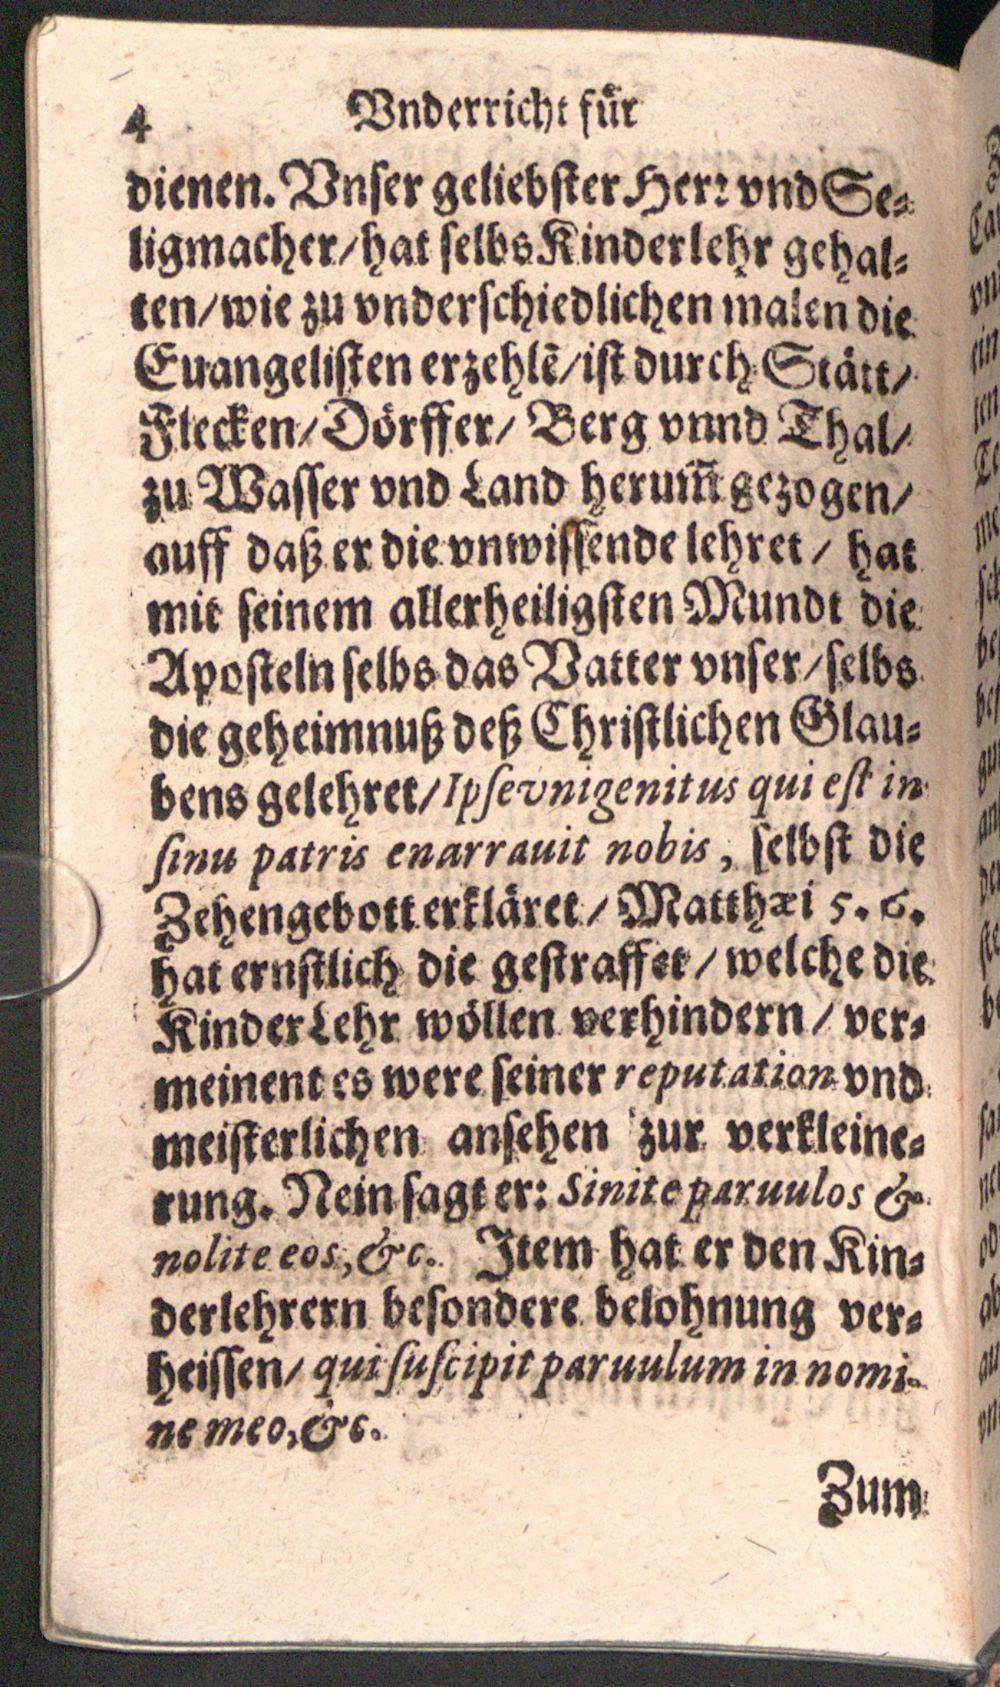 4 Vnderricht für
dienen. Vnser geliebster Herꝛ vnd Se-
ligmacher/hat selbs Kinderlehr gehal-
ten/wie zu vnderschiedlichen malen die
Euangelisten erzehlẽ/ist durch Stätt/
Flecken/Dörffer/ Berg vnnd Thal/
zu Wasser vnd Land herum̃ gezogen/
auff daß er die vnwissende lehret/ hat
mit seinem allerheiligsten Mundt die
Aposteln selbs das Vatter vnser/selbs
die geheimnuß deß Christlichen Glau-
bens gelehret/Ipse vnigenitus qui est in
sinu patris enarrauit nobis, selbst die
Zehengebott erkläret/Matthæi 5. 6.
hat ernstlich die gestraffet/welche die
Kinder Lehr wöllen verhindern/ ver-
meinent es were seiner reputation vnd
meisterlichen ansehen zur verkleine-
rung. Nein sagt er: Sinite paruulos &
nolite eos, &c. Item hat er den Kin-
derlehrern besondere belohnung ver-
heissen/ qui suscipit paruulum in nomi-
ne meo, &c.
Zum